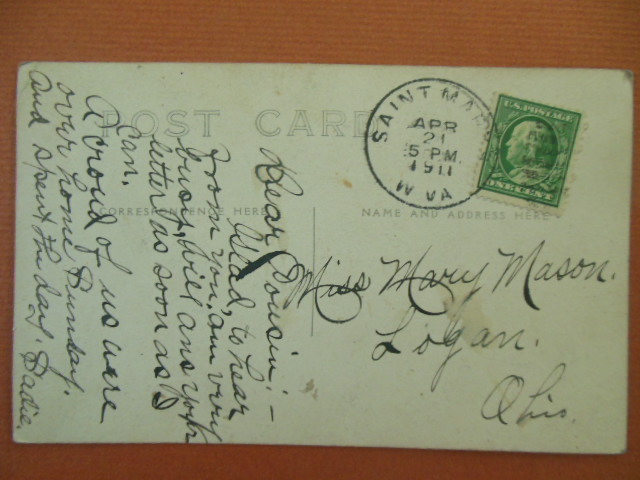 POST CARD
CORRESPONDENCE HERE
NAME AND ADDRESS HERE
SAINT MAR
APR
21
5 PM
1911
W VA
U.S. POSTAGE
ONE CENT
Dear Cousin:-
Glad, to hear
from you, am very
busy, will ans your
letter as soon as I
can.
A croud of us were
over home Sunday.
and spent the day. Sadie.
Miss Mary Mason.
Logan.
Ohio.